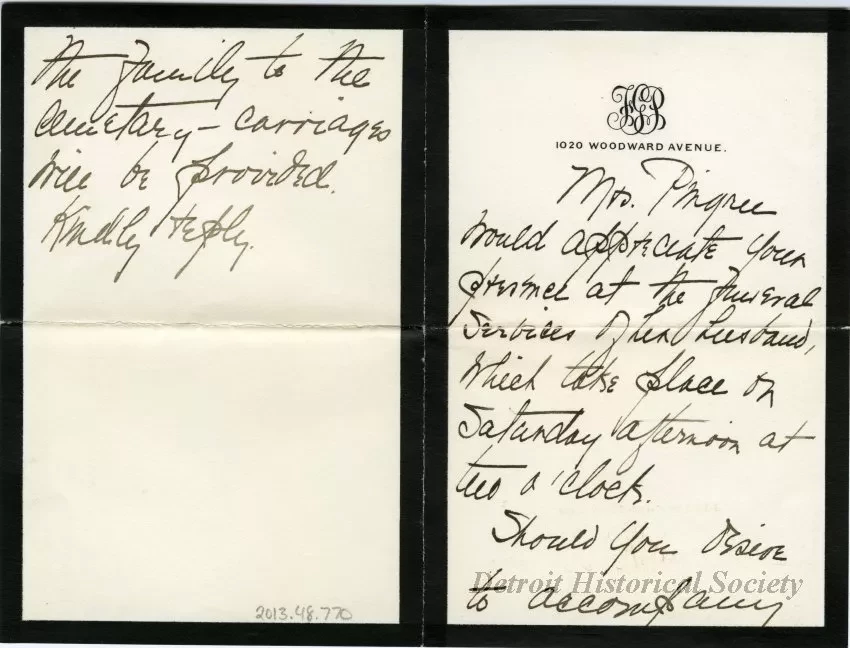 HSP
1020 WOODWARD AVENUE.
Mrs. Pingree
would appreciate your
presence at the Funeral
Services of her husband,
which take place on
Saturday afternoon at
two o'clock.
Should you desire
to accompany
the family to the
cemetary – carriages
will be provided.
Kindly reply.
2013.48.770
Detroit Historical Society